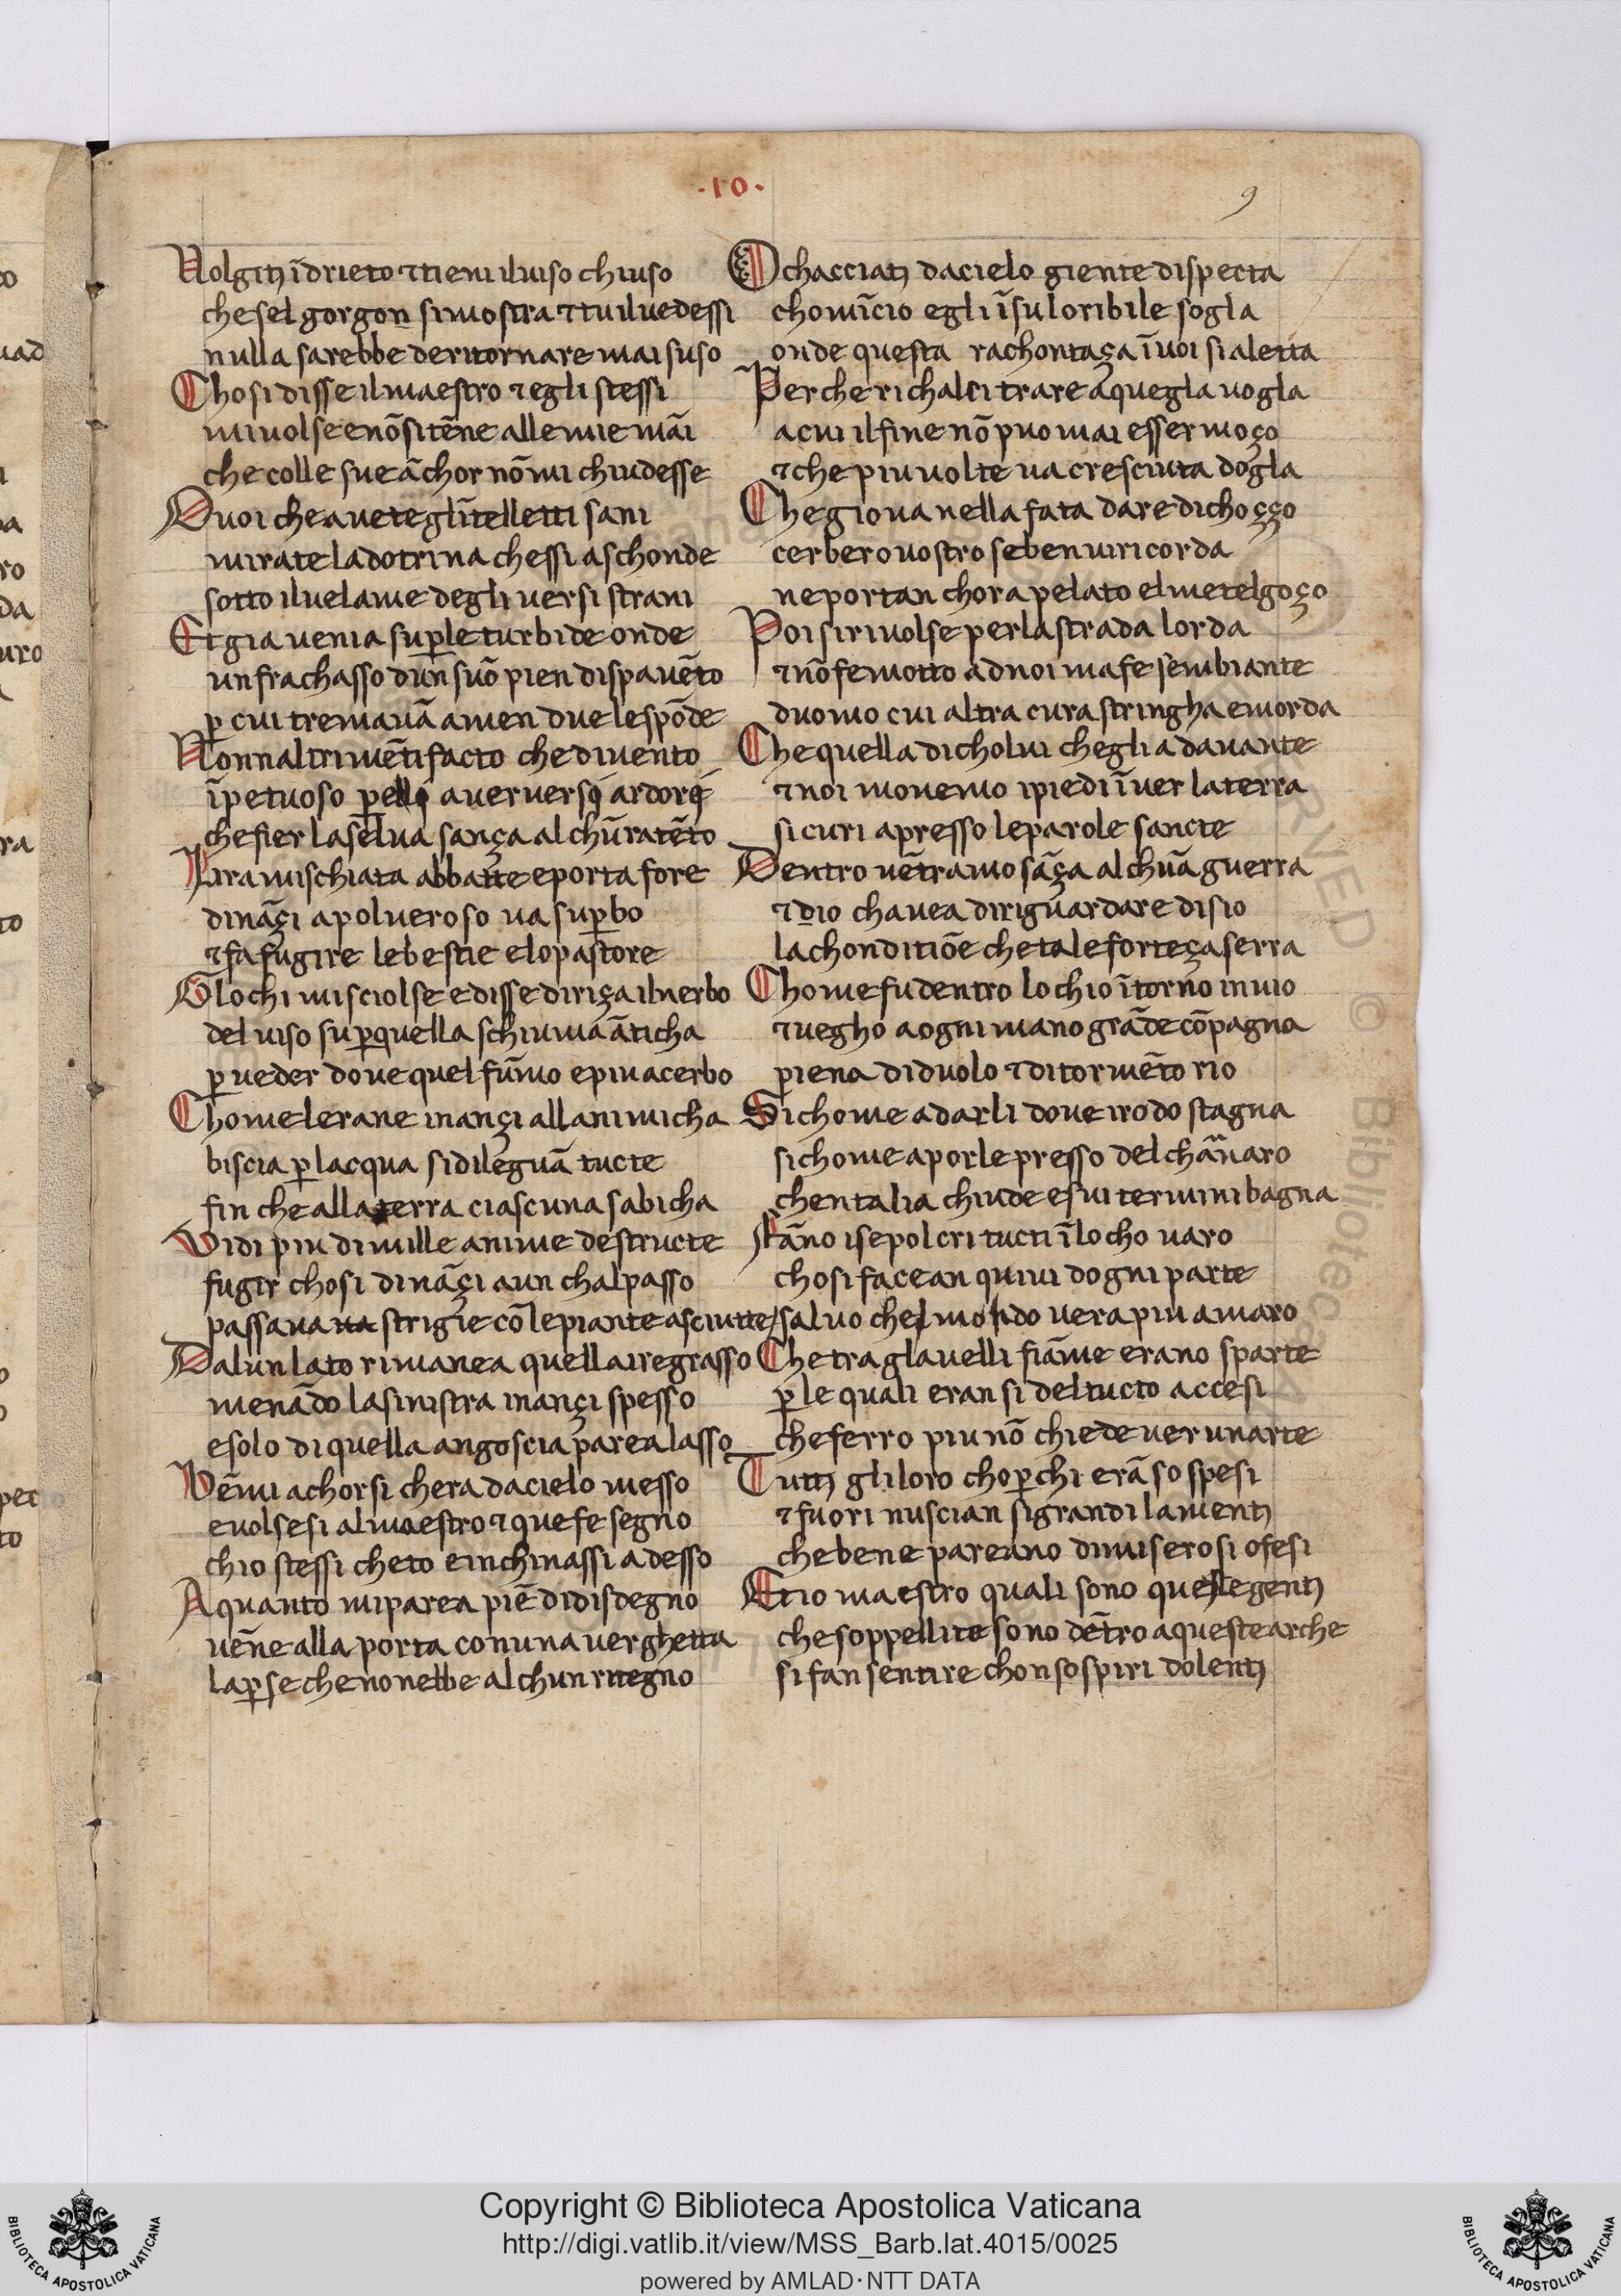 ·10·
9
Volgiti īdrieto ⁊ tieni iluiso chiuso
che sel gorgon si mostra ⁊ tu iluedessi
nulla sarebbe deritornare mai suso
Chosi disse ilmaestro ⁊ egli stessi
mi uolse e nō si tēne alle mie māi
che colle sue āchor nō mi chiudesse
O uoi che auete gl ītelletti sani
mirate la dotrina chessi aschonde
sotto iluelame degli uersi strani
Et gia uenia sup̱ le turbide onde
un frachasso dun suō pien dispauēto
p̱ cui tremauā amendue le spōde
Nonn altrimēti facto che di uento
īpetuoso p̱ elli auer uersi ardori
che fier la selua sança alchū ratēto
Li ramischiata abbatte e porta fore
dināçi apolueroso ua sup̱bo
⁊ fa fugire le bestie elo pastore
Gl ochi mi sciolse e disse diriça ilnerbo
del uiso sup̱ quella schiuma āticha
p̱ ueder doue quel fūmo e piu acerbo
Chome le rane inançi alla nimicha
biscia p̱ lacqua si dileguā tucte
fin che alla terra ciascuna sabicha
Vidi piu di mille anime destructe
fugir chosi dināçi a un chal passo
passaua ua strigie cō le piante asciutte
Dal un lato rimanea quell aire grasso
menādo la sinistra inançi spesso
e solo di quella angoscia parea lasso
Bē mi achorsi chera da cielo messo
e uolsesi al maestro ⁊ que fe segno
chio stessi cheto e inchinassi adesso
A quanto mi parea piē di disdegno
uēne alla porta con una verghetta
lap̱se che non ebbe alchun ritegno
O chacciati da cielo giente dispecta
chomīcio egli ī su loribile sogla
onde questa rachontaça ī uoi si aletta
Perche richalcitrare a quegla uogla
a cui il fine nō puo mai esser moço
⁊ che piu uolte ua cresciuta dogla
Che gioua nella fata dare di choçço
cerbero uostro se ben ui ricorda
ne porta nchora pelato el mete lgoço
Poi si riuolse per la strada lorda
⁊ nō fe motto ad noi ma fe sembiante
duomo cui altra cura stringha e morda
Che quella di cholui chegli a dauante
⁊ noi mouemo i piedi īuer la terra
sicuri apresso le parole sancte
Dentro uētramo sāça alchuā guerra
⁊ dio chauea di riguardare disio
la chonditiōe che tale forteça serra
Chome fu dentro lochio ītorno inuio
⁊ uegho a ogni mano grāde cōpagna
piena di duolo ⁊ di tormēto rio
Si chome ad arli doue irodo stagna
si chome a porle presso del chāaro
chentalia chiude e sui termini bagna
Fāno i sepolcri tucti īlocho uaro
chosi facean quiui dogni parte
saluo chel modo uera piu amaro
Che tra gl auelli fiāme erano sparte
p̱ le quali eran si del tucto accesi
che ferro piu nō chiede uerunarte
Tutti gli loro chop̱chi erā sospesi
⁊ fuori nuscian si grandi lamenti
che bene pareano dimiserosi ofesi
Et io maestro quali sono quelle genti
che soppellite sono dētro a queste arche
si fan sentire chon sospiri dolenti
Copyright © Biblioteca Apostolica Vaticana
http://digi.vatlib.it/view/MSS_Barb.lat.4015/0025
powered by AMLAD·NTT DATA
BIBLIOTECA APOSTOLICA VATICANA
BIBLIOTECA APOSTOLICA VATICANA